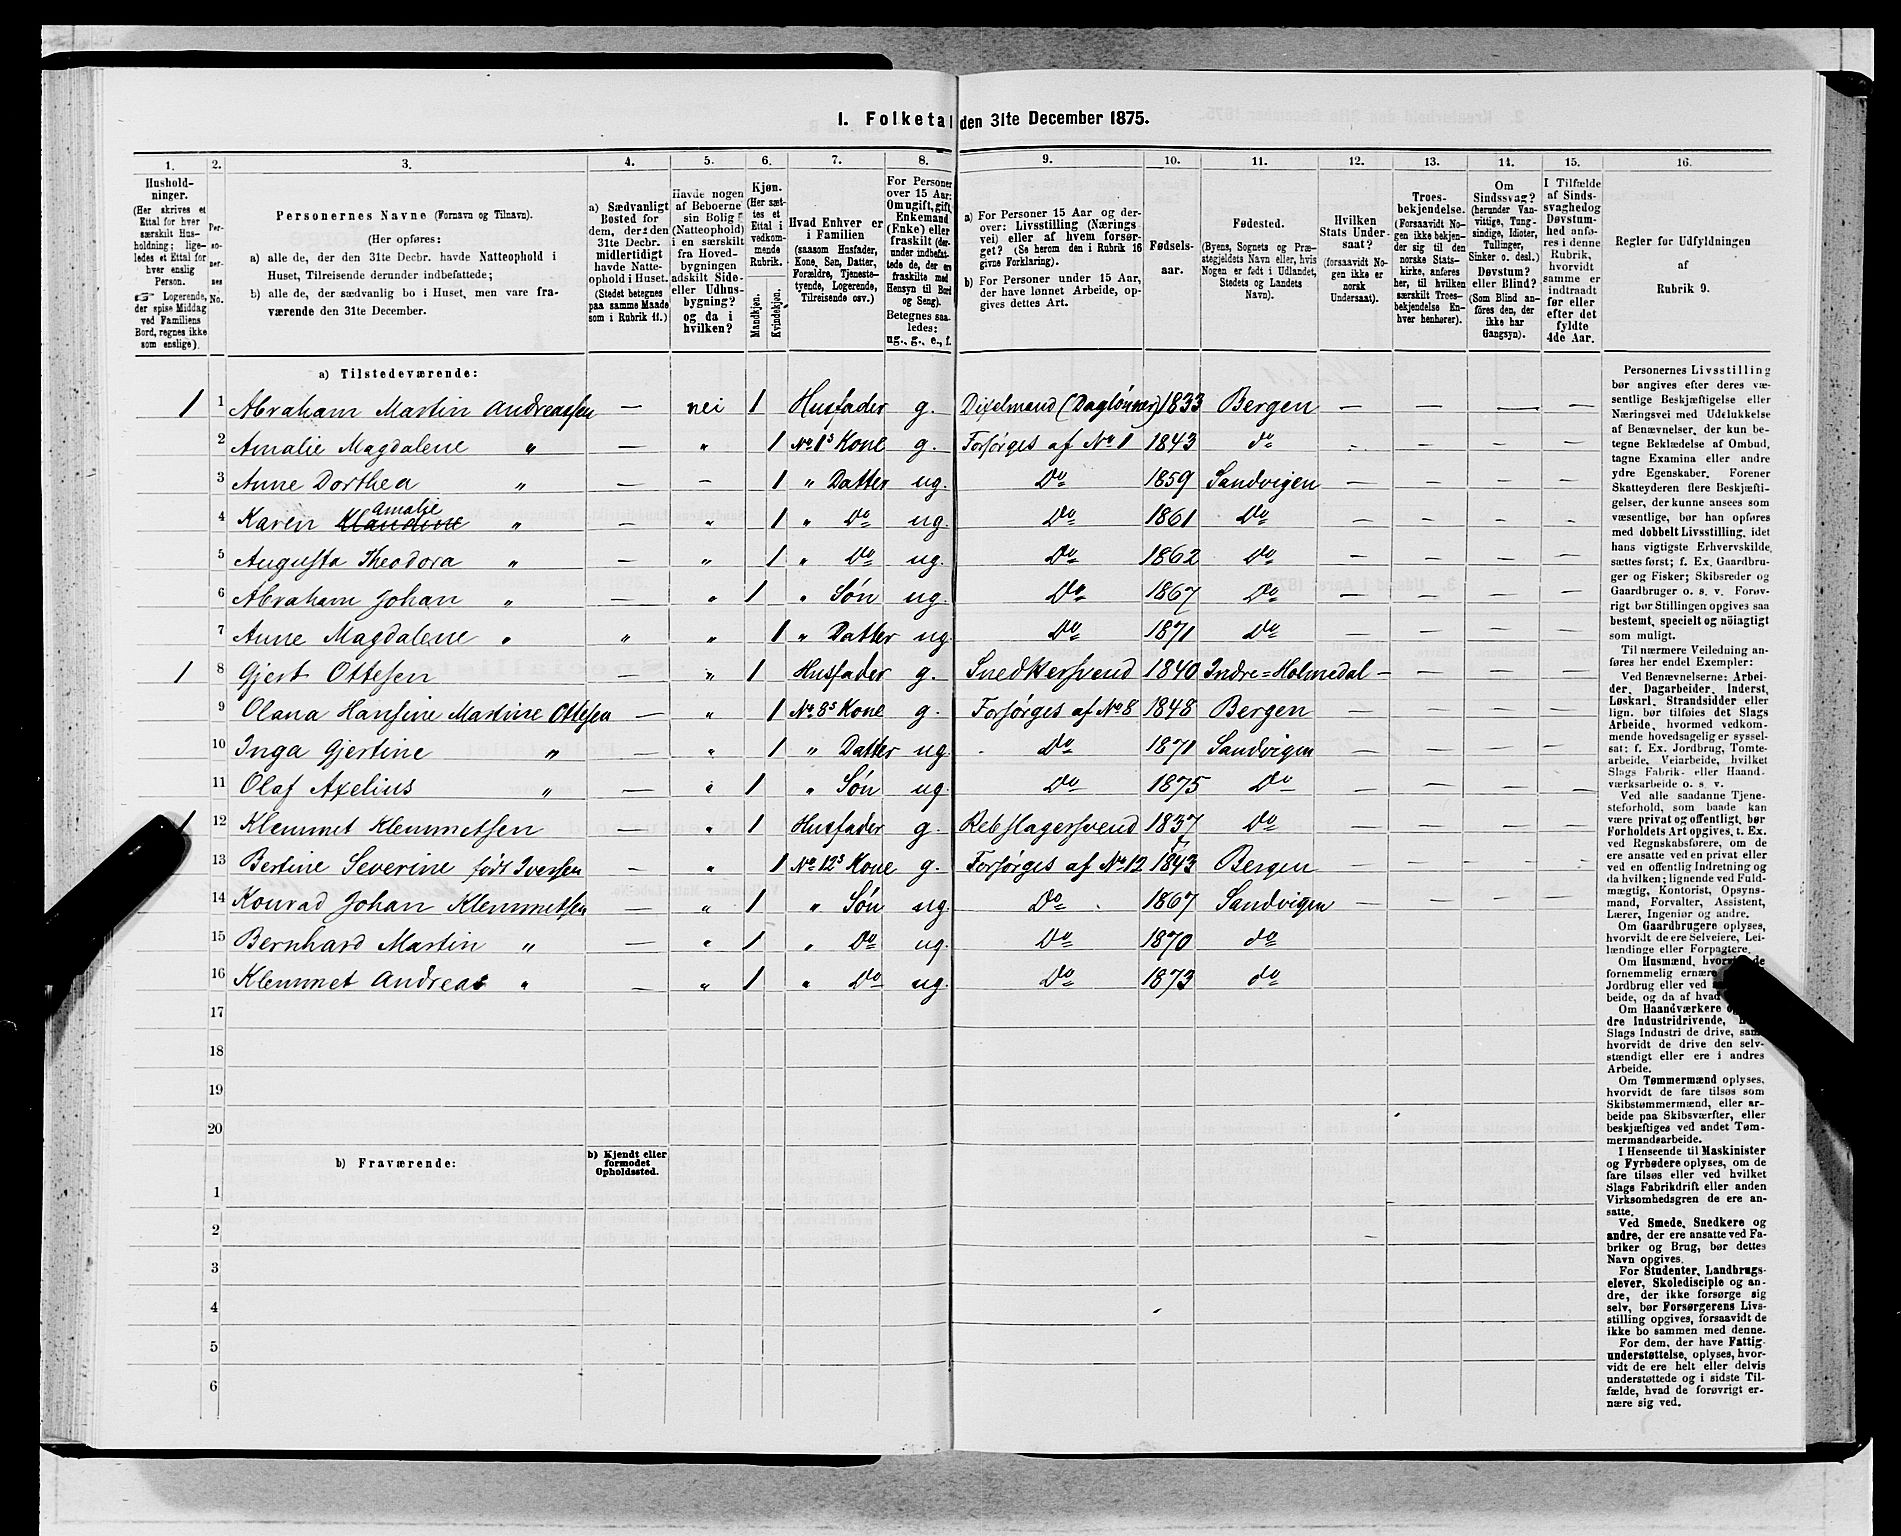 1. Folketal den 31te December 1875.
1. 2. 3. 4. 5. 6. 7. 8. 9. 10. 11. 12. 13. 14. 15. 16.
Hushold-
ninger.
(Her skrives et
Ettal for hver
særskilt Hus-
holdning; lige-
ledes et Ettal for
hver enslig
Person.
☞ Logerende,
der spise Middag
ved Familiens
Bord, regnes ikke
som enslige).
Per-
so-
ner-
nes
No.
Personernes Navne (Fornavn og Tilnavn).
(Her opføres:
a) alle de, der den 31te Decbr. havde Natteophold i
Huset, Tilreisende derunder indbefattede;
b) alle de, der sædvanlig bo i Huset, men vare fra-
værende den 31te December.
a) Sædvanligt
Bosted for
dem, der den
31te Decbr.
midlertidigt
havde Natte-
ophold i Huset.
(Stedet betegnes
paa samme Maade
som i Rubrik 11.)
Havde nogen
af Beboerne
sin Bolig
(Natteophold)
i en særskilt
fra Hoved-
bygningen
adskilt Side-
eller Udhus-
bygning?
og da i
hvilken?
Kjøn.
(Her sæt-
tes et
Ettal i
vedkom-
mende
Rubrik.
Mandkjøn.
Kvindekjøn.
Hvad Enhver er
i Familien
(saasom Husfader,
Kone, Søn, Datter,
Forældre, Tjeneste-
tyende, Logerende,
Tilreisende osv.)
For Personer
over 15 Aar:
Om ugift, gift,
Enkemand
(Enke) eller
fraskilt (der-
under indbefat-
tede de, der ere
fraskilte med
Hensyn til Bord
og Seng).
Betegnes saa-
ledes:
ug., g., e., f.
a) For Personer 15 Aar og der-
over: Livsstilling (Nærings-
vei) eller af hvem forsør-
get? (Se herom den i Rubrik 16
givne Forklaring).
b) For Personer under 15 Aar,
der have lønnet Arbeide, op-
gives dettes Art.
Fødsels-
aar.
Fødested.
(Byens, Sognets og Præ-
stegjeldets Navn eller, hvis
Nogen er født i Udlandet,
Stedets og Landets
Navn).
Hvilken
Stats Under-
saat?
(forsaavidt No-
gen ikke er
norsk
Undersaat).
Troes-
bekjendelse.
(Forsaavidt No-
gen ikke bekjen-
der sig til den
norske Stats-
kirke, anføres
her, til hvilken
særskilt Troes-
bekjendelse En-
hver henhører).
Om
Sindssvag?
(herunder Van-
vittige, Tung-
sindige, Idioter,
Tullinger,
Sinker o. desl.)
Døvstum?
eller Blind?
(Som Blind an-
føres den, der
ikke har
Gangsyn).
I Tilfælde
af Sinds-
svaghed og
Døvstum-
hed anfø-
res i denne
Rubrik,
hvorvidt
samme er
indtraadt
før eller
efter det
fyldte
4de Aar.
Regler for Udfyldningen
af
Rubrik 9.
a) Tilstedeværende:
1 1 Abraham Martin Andreassen — nei 1 Husfader g. Dixelmand (Daglønner) 1833 Bergen — — — —
2 Amalie Magdalene " — " 1 No 1s Kone g. Forsørges af No 1 1843 do — — — —
3 Anne Dorthea " — - 1 " Datter ug. Do 1859 Sandvigen — — — —
4 Karen Klaudine Amalie " — " 1 " Do ug. Do 1861 Do — — — —
5 Augusta Theodora " — " 1 " Do ug. Do 1862 Do — — — —
6 Abraham Johan " — " 1 " Søn ug. Do 1867 Do — — — —
7 Anne Magdalene " " " 1 " Datter ug. Do 1871 Do — — — —
1 8 Gjert Ottesen " 1 Husfader g. Snedkersvend 1840 Indre=Holmedal — — — —
9 Olana Hansine Martine Ottesen — " 1 No 8s Kone g. Forsørges af No 8 1848 Bergen — — — —
10 Inga Gjertine " — " 1 " Datter ug. Do 1871 Sandvigen — — — —
11 Olaf Axelius " — " 1 " Søn ug. Do 1875 Do — — — —
1 12 Klemmet Klemmetsen — " 1 Husfader g. Rebslagersvend 1837 Do — — — —
13 Bertine Severine født Iversen — " 1 No 12s Kone g. Forsørges af No 12 1843 Bergen — — — —
14 Konrad Johan Klemmetsen — " 1 " Søn ug. Do 1867 Sandvigen — — — —
15 Bernhard Martin " — " 1 " Do ug. Do 1870 do — — — —
16 Klemmet Andreas " — " 1 " Do ug. Do 1873 do — — — —
17
18
19
20
b) Fraværende:
b) Kjendt eller
formodet
Opholdssted.
1
2
3
4
5
6
Personernes Livsstilling
bør angives efter deres væ-
sentlige Beskjæftigelse eller
Næringsvei med Udelukkelse
af Benævnelser, der kun be-
tegne Beklædelse af Ombud,
tagne Examina eller andre
ydre Egenskaber. Forener
Skatteyderen flere Beskjæfti-
gelser, der kunne ansees som
væsentlige, bør han opføres
med dobbelt Livsstilling, idet
hans vigtigste Erhvervskilde
sættes først; f. Ex. Gaardbru-
ger og Fisker; Skibsreder og
Gaardbruger o. s. v. Forøv-
rigt bør Stillingen opgives saa
bestemt, specielt og nöiagtigt
som muligt.
Til nærmere Veiledning an-
føres her endel Exempler:
Ved Benævnelserne: Arbei-
der, Dagarbeider, Inderst,
Løskarl, Strandsidder eller
lign. bør tilføies det Slags
Arbeide, hvormed vedkom-
mende hovedsagelig er syssel-
sat; f. Ex. Jordbrug, Tomte-
arbeide, Veiarbeide, hvilket
Slags Fabrik- eller Haand-
værksarbeide o. s. v.
Ved alle saadanne Tjene-
steforhold, som baade kan
være privat og offentligt, bør
Forholdets Art opgives, t. Ex.
ved Regnskabsførere, om de
ere ansatte ved en privat eller
ved en offentlig Indretning og
da hvilken; lignende ved Fuld-
mægtig, Kontorist, Opsyns-
mand, Forvalter, Assistent,
Lærer, Ingeniør og andre.
Om Gaardbrugere oplyses,
hvorvidt de ere Selveiere, Lei-
lændinge eller Forpagtere.
Om Husmænd, hvorvidt de
fornemmelig ernære
Jordbrug eller ved
beide, og da af hvad
Om Haandværkere og
dre Industridrivende,
Slags Industri de drive, samt
hvorvidt de drive den selv-
stændigt eller ere i andres
Arbeide.
Om Tømmermænd oplyses,
hvorvidt de fare tilsøs som
Skibstømmermænd, eller ar-
beide paa Skibsværfter, eller
beskjæftiges ved andet Tøm-
mermandsarbeide.
I Henseende til Maskinister
og Fyrbødere oplyses, om de
fare tilsøs eller ved hvilket
Slags Fabrikdrift eller anden
Virksomhedsgren de ere an-
satte.
Ved Smede, Snedkere og
andre, der ere ansatte ved Fa-
briker og Brug, bør dettes
Navn opgives.
For Studenter, Landbrugs-
elever, Skoledisciple og an-
dre, der ikke forsørge sig
selv, bør Forsørgerens Livs-
stilling opgives, forsaavidt de
ikke bo sammen med denne.
For dem, der have Fattig-
understøttelse, oplyses, hvor-
vidt de ere helt eller delvis
understøttede og i sidste Til-
fælde, hvad de forøvrigt er-
nære sig ved.